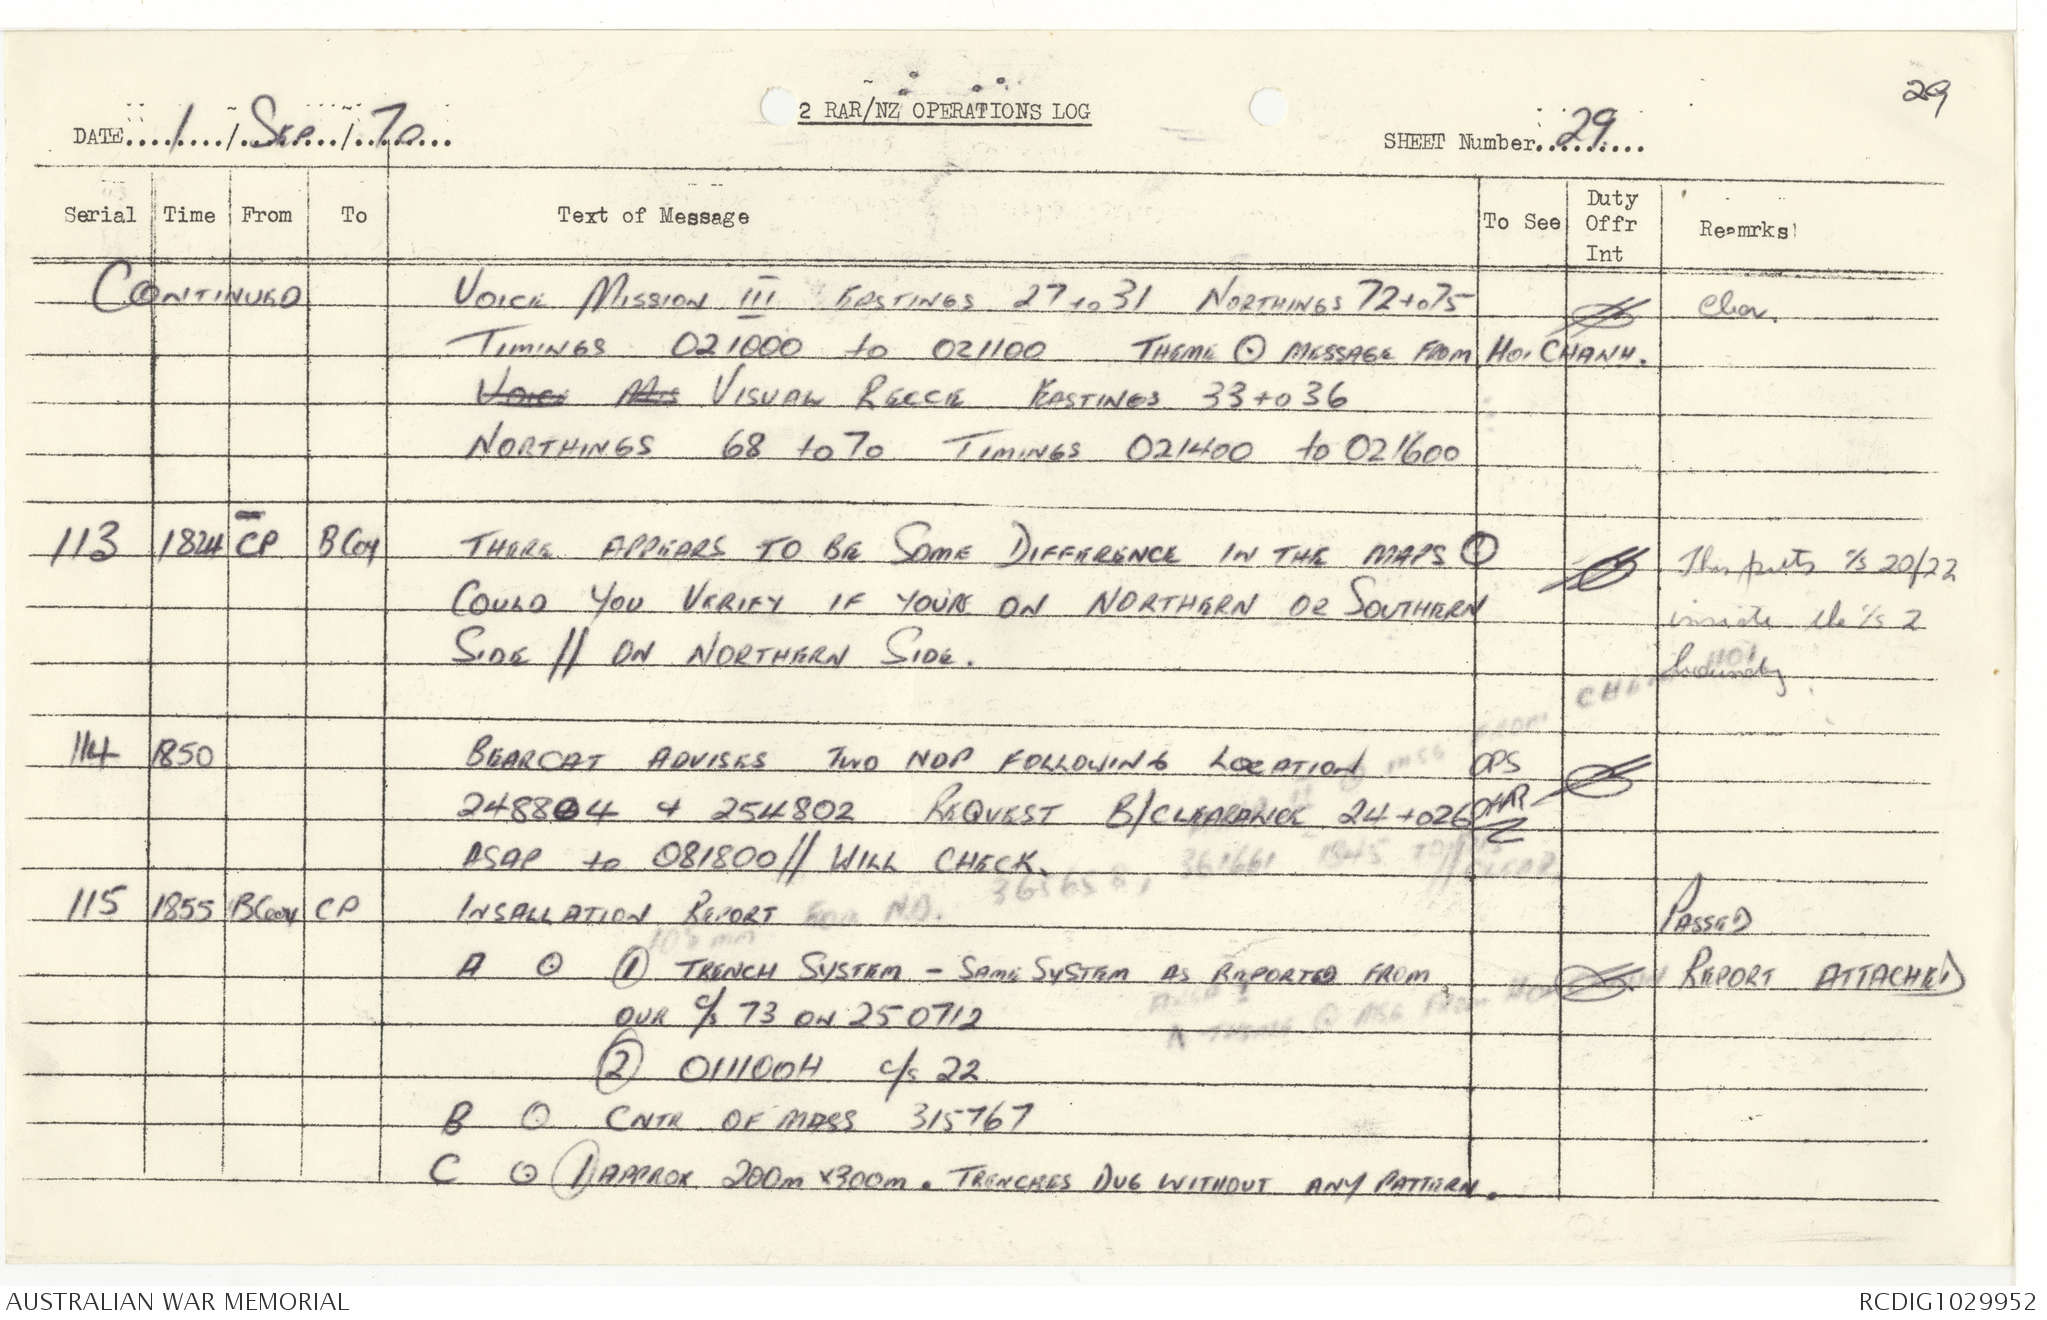 29
2 RAR/NZ OPERATIONS LOG
DATE....1..../.Sep.../.70....
SHEET Number..29.......
Serial Time From To Text of Message To See Duty Offr Int Reamrks
CONTINUED VOICE MISSION III EASTINGS 27 to 31 NORTHINGS 72 to 75
TIMINGS 021000 to 021100 THEME ⊙ MESSAGE FROM HOI CHANH.
VOICE MIS VISUAL RECCE EASTINGS 33 to 36
NORTHINGS 68 to 70 TIMINGS 021400 to 021600
113 1824 CP B Coy THERE APPEARS TO BE SOME DIFFERENCE IN THE MAPS ⊙ This puts c/s 20/22
COULD YOU VERIFY IF YOU'RE ON NORTHERN OR SOUTHERN inside the c/s 2
SIDE // ON NORTHERN SIDE. boundary.
114 1850 BEARCAT ADVISES TWO NDP FOLLOWING LOCATION OPS
248804 & 254802 REQUEST B/CLEARANCE 24 to 26
ASAP to 081800 // WILL CHECK.
115 1855 B Coy CP INSALLATION REPORT PASSED
A ⊙ (1) TRENCH SYSTEM - SAME SYSTEM AS REPORTED FROM REPORT ATTACHED
OUR c/s 73 ON 250712
(2) 011100H c/s 22
B ⊙ CNTR OF MASS 315767
C ⊙ (1) APPROX 200m x 300m. TRENCHES DUG WITHOUT ANY PATTERN.
AUSTRALIAN WAR MEMORIAL
RCDIG1029952